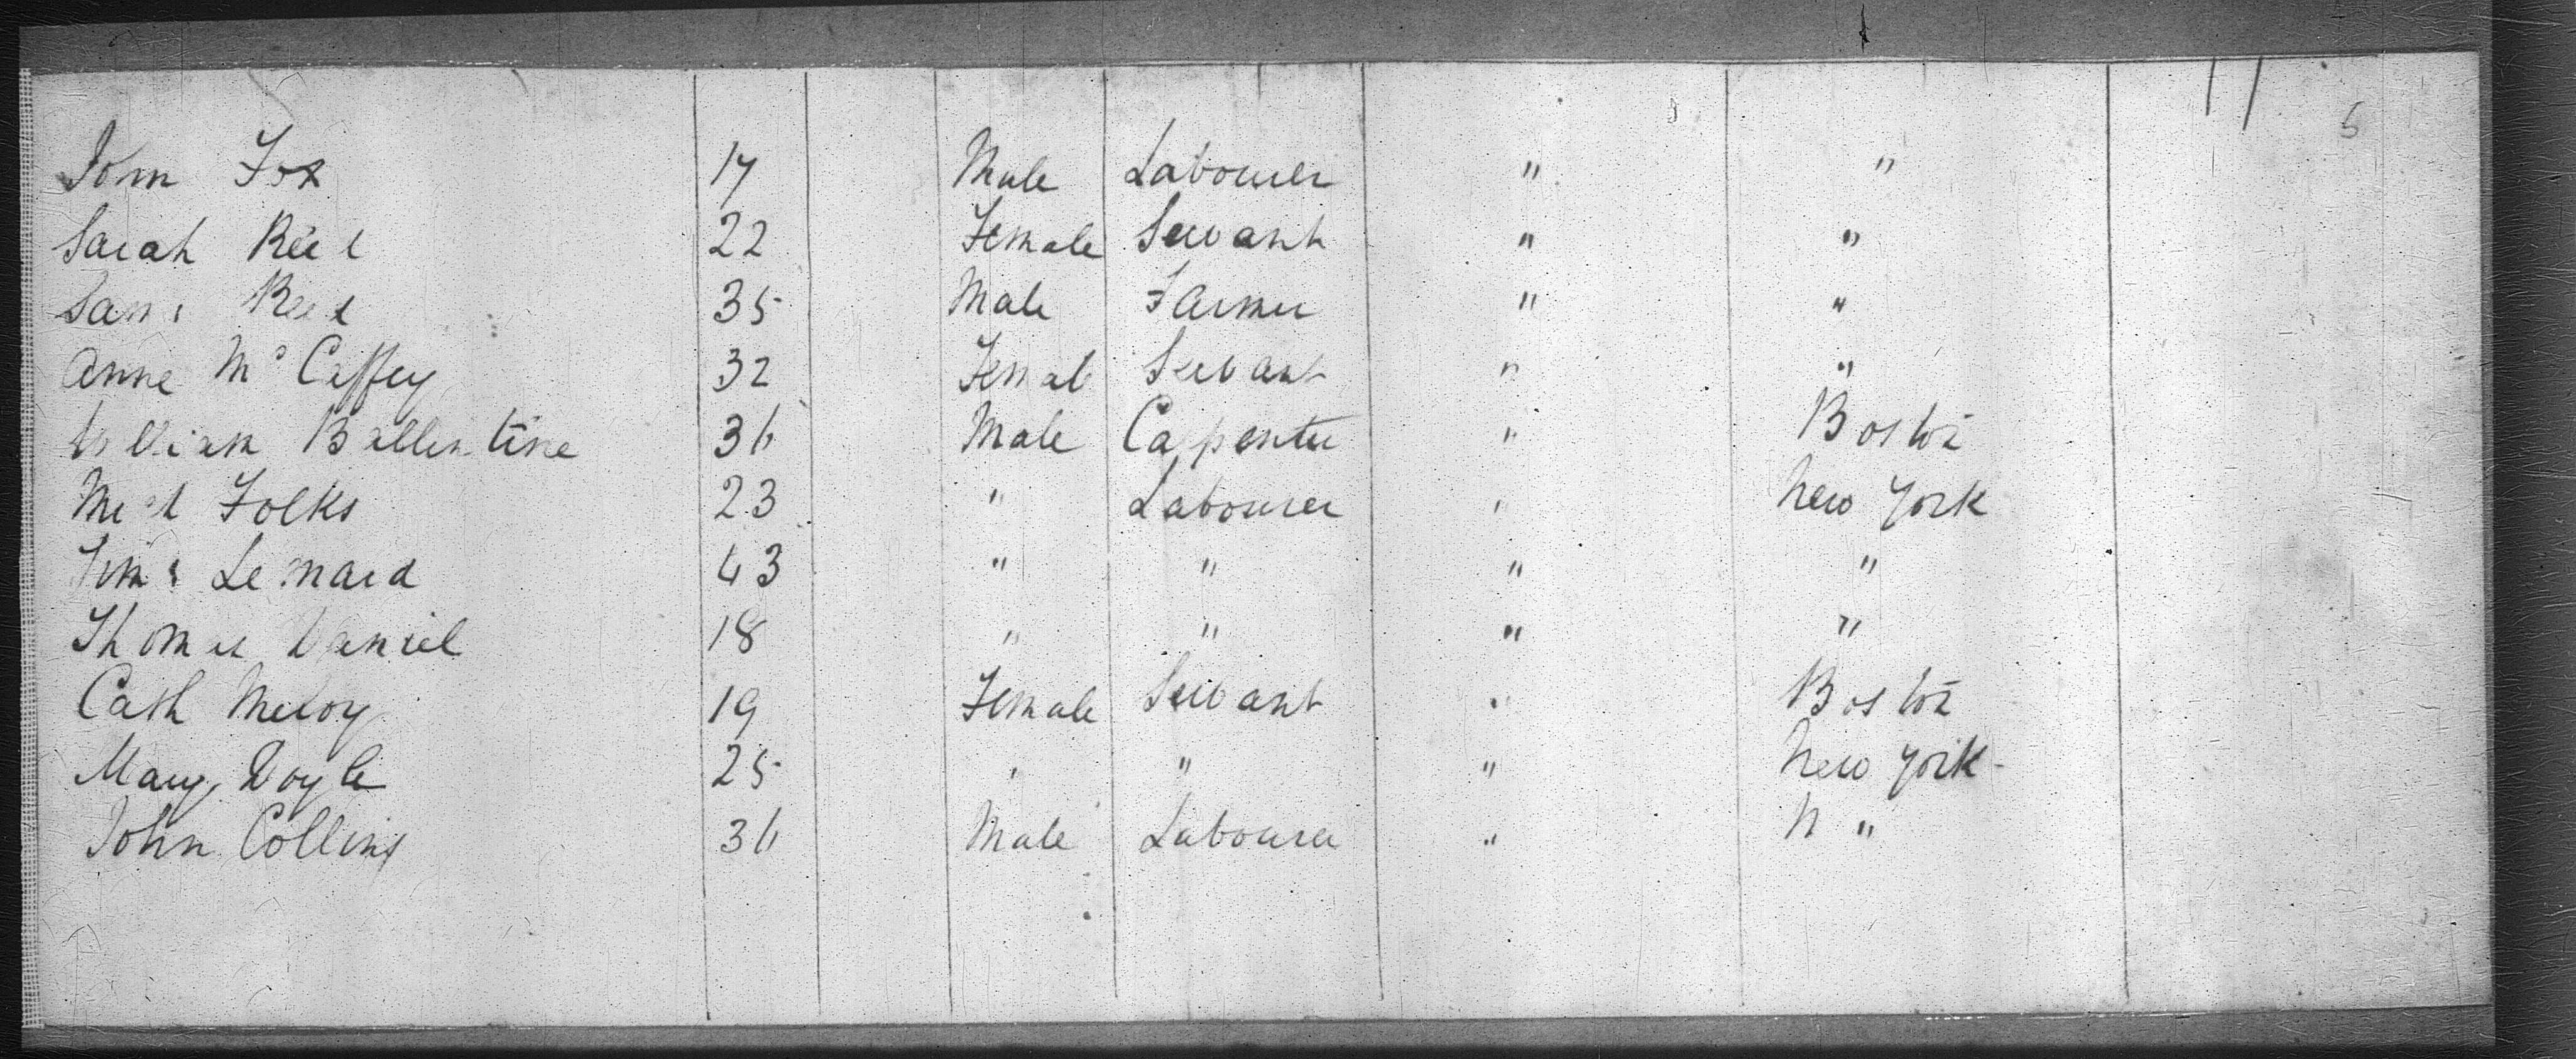 5
Tom Fox 17 Male Labourer " "
Sarah Reid 22 Female Servant " "
Reid 35 Male Farmer " "
Anne Mc Caffey 32 Femal Servant " "
William Ballentine 36 Male Carpenter " Boston
Folks 23 " Labourer " New York
Lennard 43 " " " "
Thomas Daniel 18 " " " "
Cath Meloy 19 Female Servant " Boston
Mary Doyle 25 " " " New York
John Collins 36 Male Labourer " N "